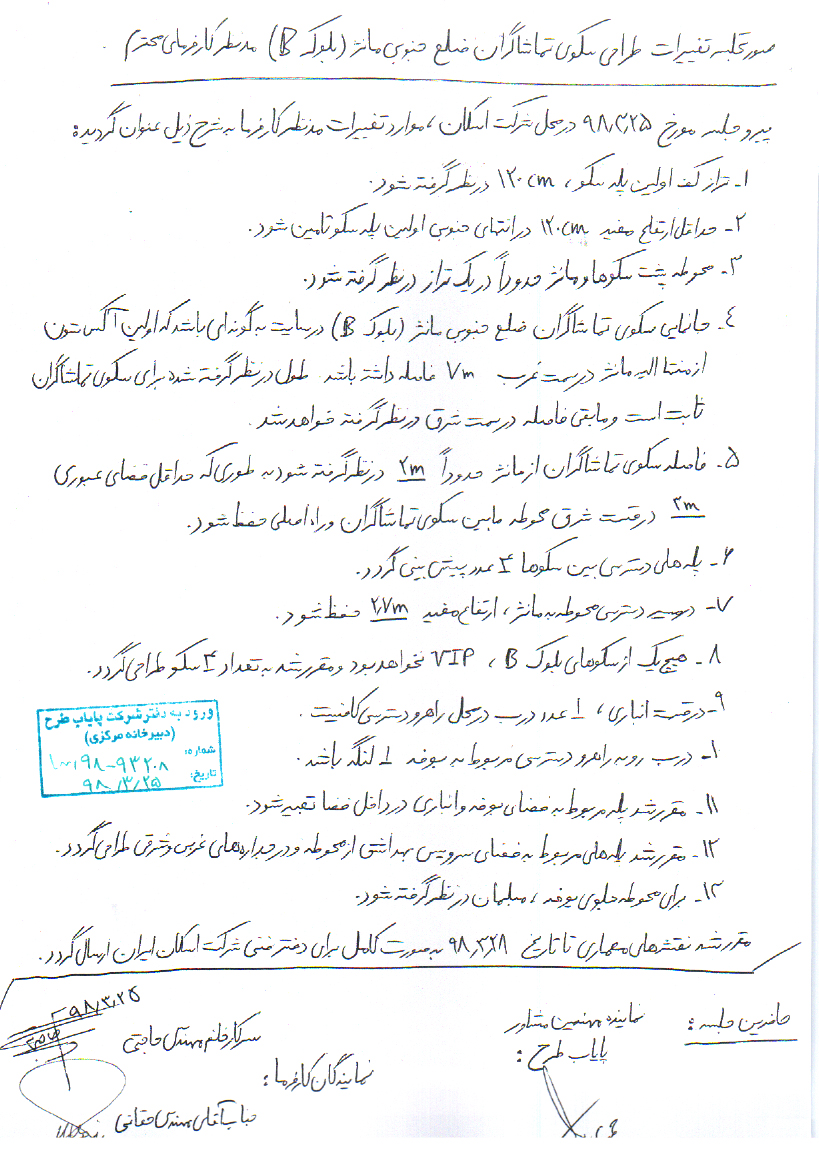 صورتجلسه تغییرات طراحی سکوی تماشاگران ضلع جنوبی مانژ (بلوک B) مدنظر کارفرمای محترم.
پیرو جلسه مورخ ۹۸/۳/۲۵ در محل شرکت اسکان، موارد تغییرات مدنظر کارفرما به شرح ذیل عنوان گردید:
۱- تراز کف اولین پله سکو، ۱۲۰cm در نظر گرفته شود.
۲- حداقل ارتفاع مفید ۱۲۰cm در انتهای جنوبی اولین پله سکو تامین شود.
۳- محوطه پشت سکوها و مانژ حدوداً در یک تراز در نظر گرفته شود.
۴- جانمایی سکوی تماشاگران ضلع جنوبی مانژ (بلوک B) در سایت به گونه‌ای باشد که اولین آکس ستون
از منتها الیه مانژ در سمت غرب ۷m فاصله داشته باشد طول در نظر گرفته شده برای سکوی تماشاگران
ثابت است و مابقی فاصله در سمت شرق در نظر گرفته خواهد شد.
۵- فاصله سکوی تماشاگران از مانژ حدوداً ۲m در نظر گرفته شود به طوری که حداقل فضای عبوری
۳m در قسمت شرق محوطه مابین سکوی تماشاگران و راه اصلی حفظ شود.
۶- پله‌های دسترسی بین سکوها ۴ عدد پیش بینی گردد.
۷- در مسیر دسترسی محوطه به مانژ، ارتفاع مفید ۲٫۷m حفظ شود.
۸- هیچ یک از سکوهای بلوک B، VIP نخواهد بود و مقرر شد به تعداد ۴ سکو طراحی گردد.
۹- در قسمت انباری، ۱ عدد درب در محل راهرو دسترسی کافیست.
۱۰- درب رو به راهرو دسترسی مربوط به بوفه ۱ لنگه باشد.
۱۱- مقرر شد پله مربوط به فضای بوفه و انباری در داخل فضا تعبیه شود.
۱۲- مقرر شد پله‌های مربوط به فضای سرویس بهداشتی از محوطه و در جداره‌های غربی و شرقی طراحی گردد.
۱۳- برای محوطه جلوی بوفه، مبلمان در نظر گرفته شود.
مقرر شد نقشه‌های معماری تا تاریخ ۹۸/۳/۲۸ به صورت کامل برای دفتر فنی شرکت اسکان ایران ارسال گردد.
ورود به دفتر شرکت پایاب طرح
(دبیرخانه مرکزی)
شماره: ۹۸-۹۳۲۰۸
تاریخ: ۹۸/۳/۲۵
حاضرین جلسه:
نماینده مهندسین مشاور
پایاب طرح:
نمایندگان کارفرما:
سرکار خانم مهندس حاجتی
۹۸/۳/۲۵
جناب آقای مهندس حقانی